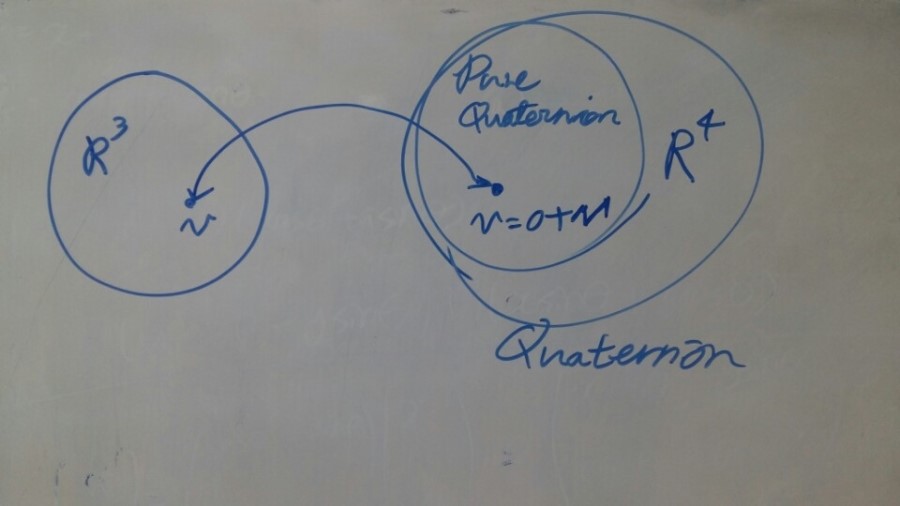 R³
v
Pure
Quaternion
v=0+v
R⁴
Quaternion